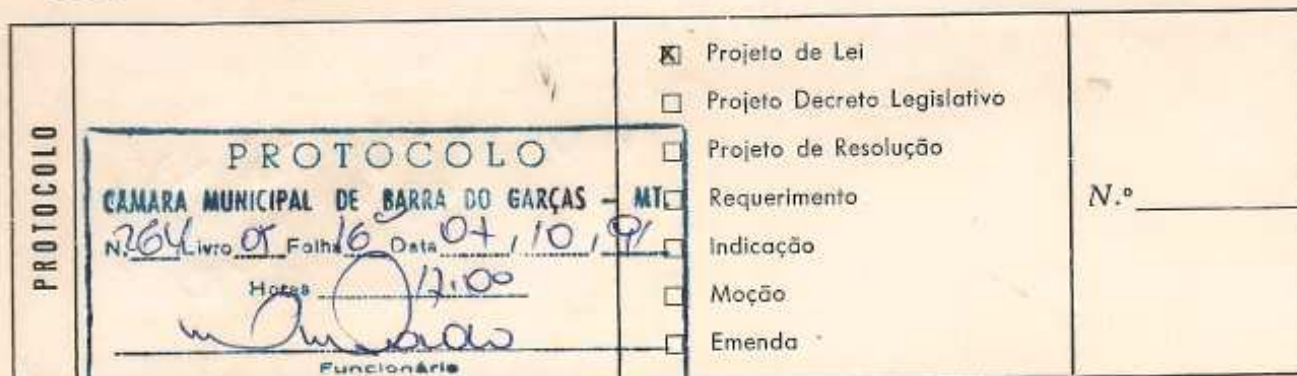 PROTOCOLO
PROTOCOLO
CÂMARA MUNICIPAL DE BARRA DO GARÇAS - MT.
N. 264 Livro Folha 16 Data , 10 , 91
Horas 17:00
Funcionário
X Projeto de Lei
Projeto Decreto Legislativo
Projeto de Resolução
Requerimento
Indicação
Moção
Emenda
N.º